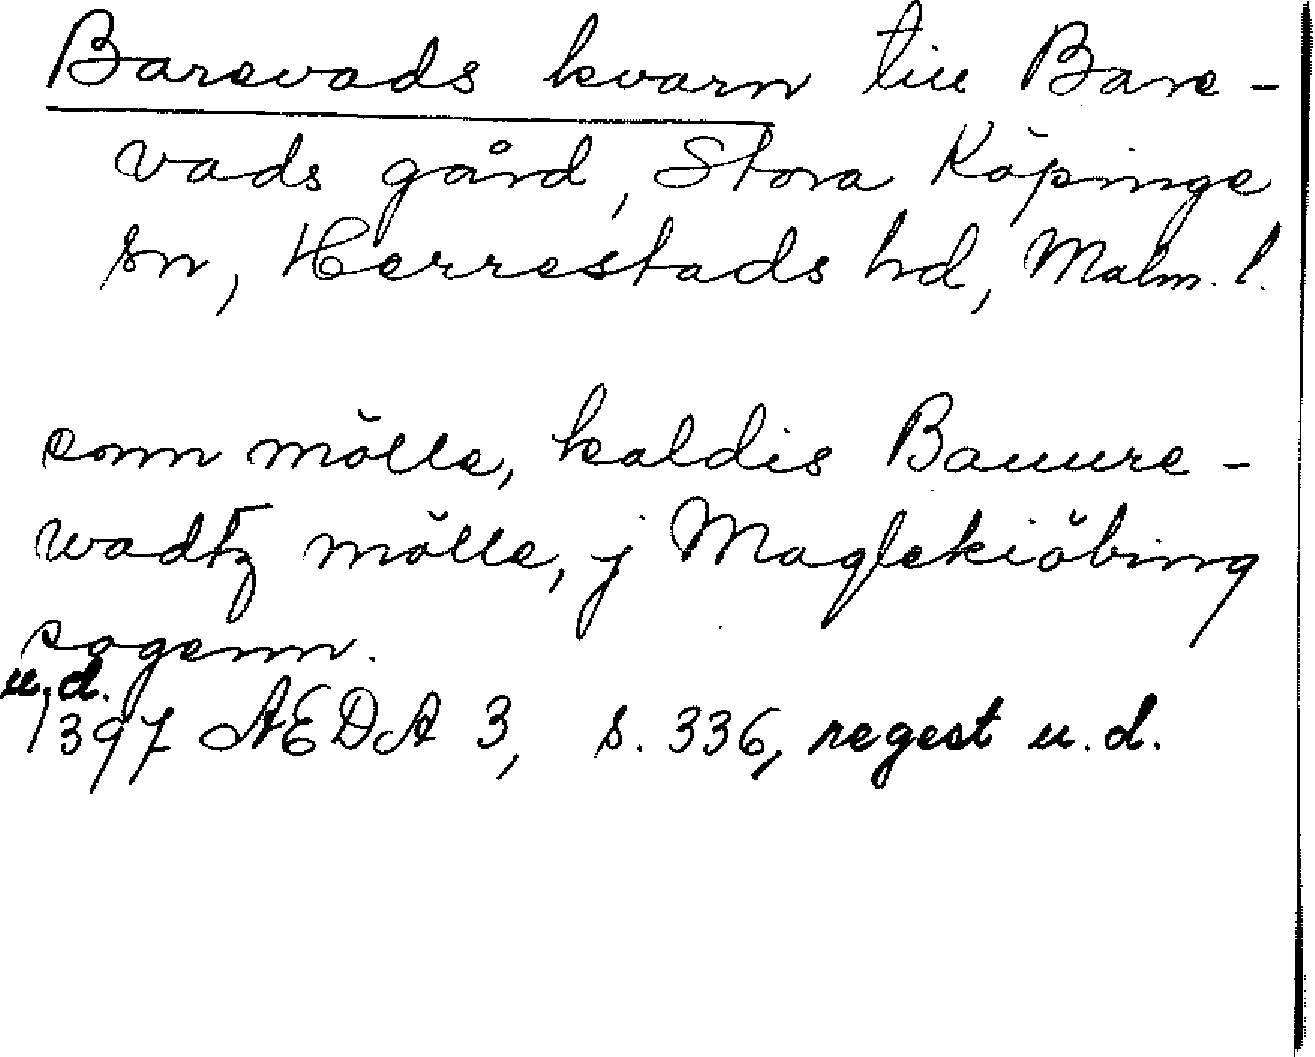 Barevads kvarn till Bare-
vads gård, Stora Köpinge
sn, Herrestads hd, Malm. l.
som mölle, kaldis Bauure-
wadtz mölle, j Maglekiöbing
sogenn.
u.d.
1397 ÆDA 3, s. 336, regest u.d.